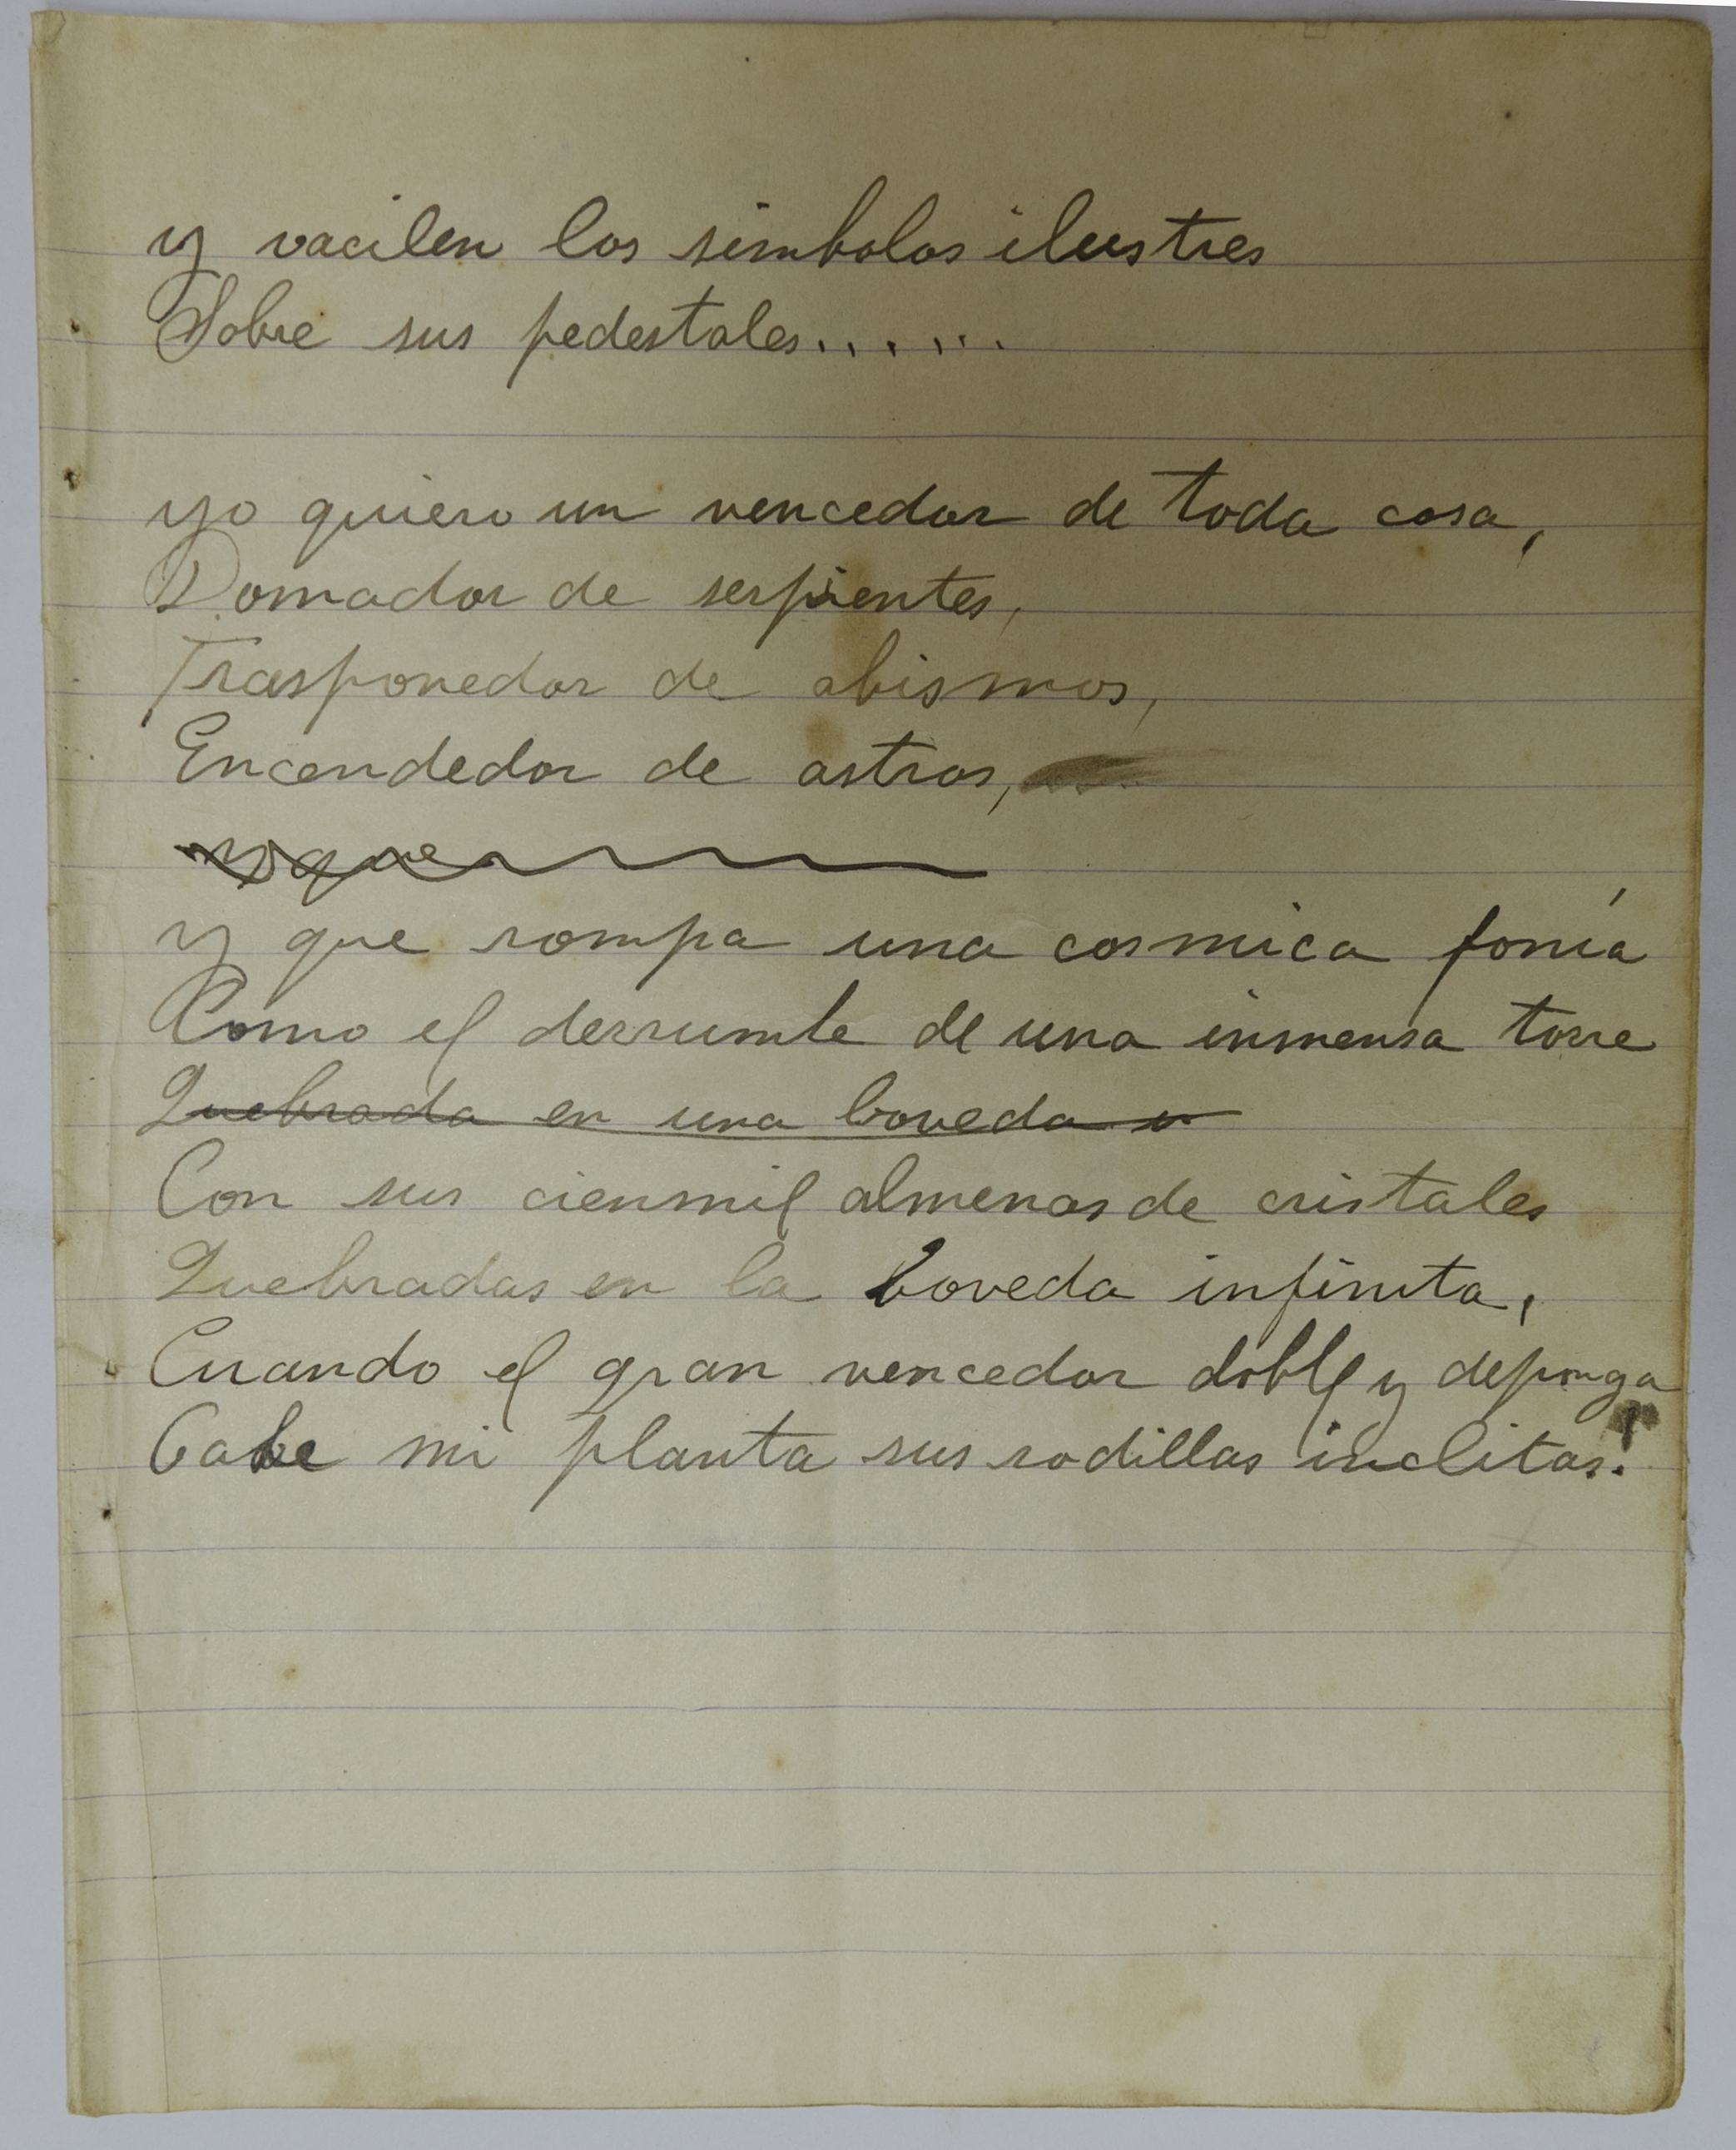 y vacilen los simbolos ilustres
Sobre sus pedestales......
yo quiero un vencedor de toda cosa,
Domador de serpientes,
Trasponedor de abismos,
Encendedor de astros,
y que
y que rompa una cosmica fonía
Como el derrumbe de una inmensa torre
Quebrada en una boveda
Con sus cienmil almenas de cristales
Quebradas en la boveda infinita,
Cuando el gran vencedor doble y deponga
Cabe mi planta sus rodillas inclitas!